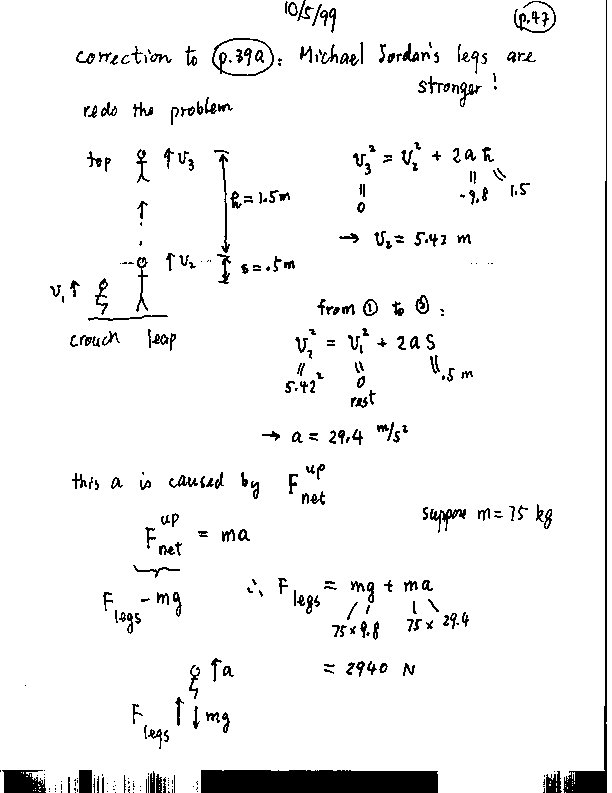 10/5/99
p.47
correction to p.39a : Michael Jordan's legs are
stronger !
redo the problem
top ↑ v₃
h = 1.5m
v₃² = v₂² + 2 a h
0 -9.8 1.5
→ v₂ = 5.42 m
↑ v₂ s = .5m
v₁ ↑
crouch leap
from ① to ② :
v₂² = v₁² + 2 a S
5.42² 0 .5 m
rest
→ a = 29.4 m/s²
this a is caused by F net up
suppose m = 75 kg
F net up = ma
F legs - mg
∴ F legs = mg + ma
75 × 9.8 75 × 29.4
= 2940 N
↑a
F legs ↑ ↓ mg